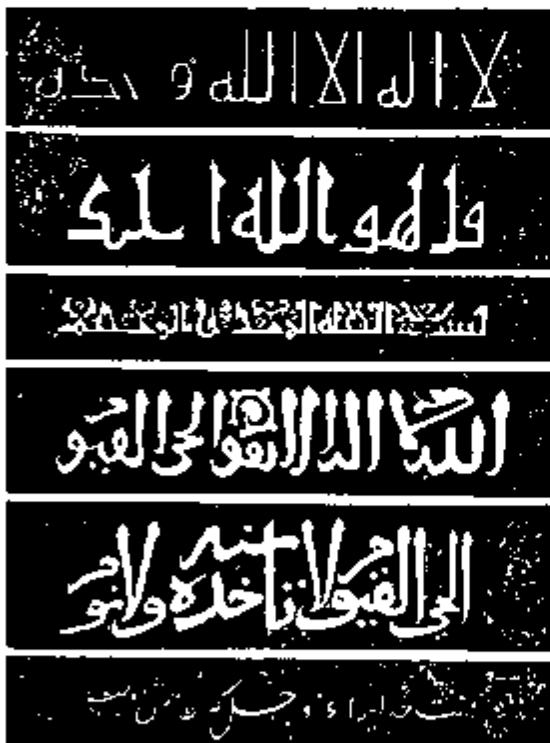 لا اله الا الله وحده
قل هو الله احد
بسم الله الرحمن الرحيم
الله لا اله الا هو الحي القيو
الحي القيوم لا تاخذه سنه ولا نوم